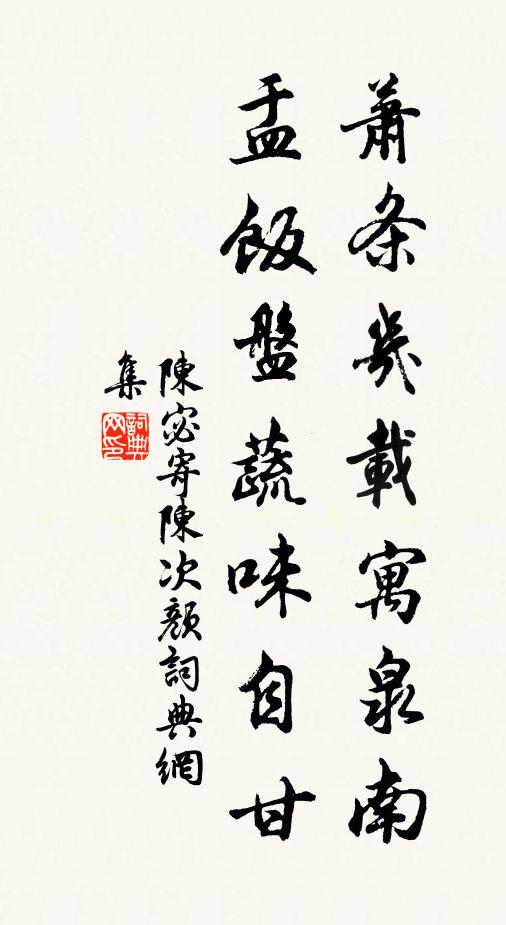 蕭条幾載寓泉南
盂飯盤蔬味自甘
陳宓寄陳次顏詞典網
集
詞典網印